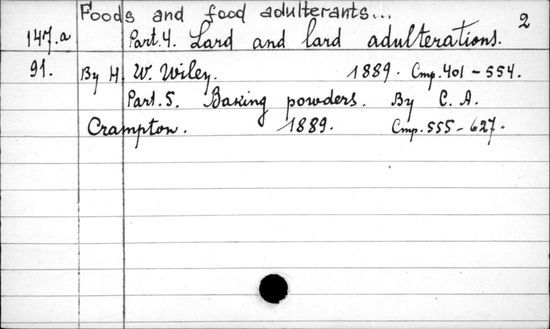 Foods and food adulterants... 2
147.a Part.4. Lard and lard adulterations.
91. By H. W. Wiley. 1889. Стр.401-554.
Part.5. Baking powders. By C. A.
Crampton. 1889. Стр.555-627.